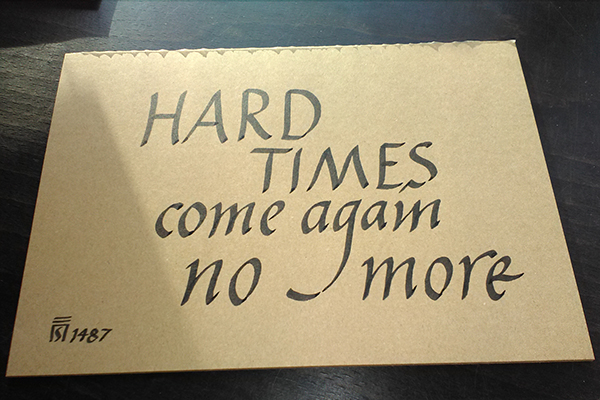 HARD
TIMES
come again
no more
1487